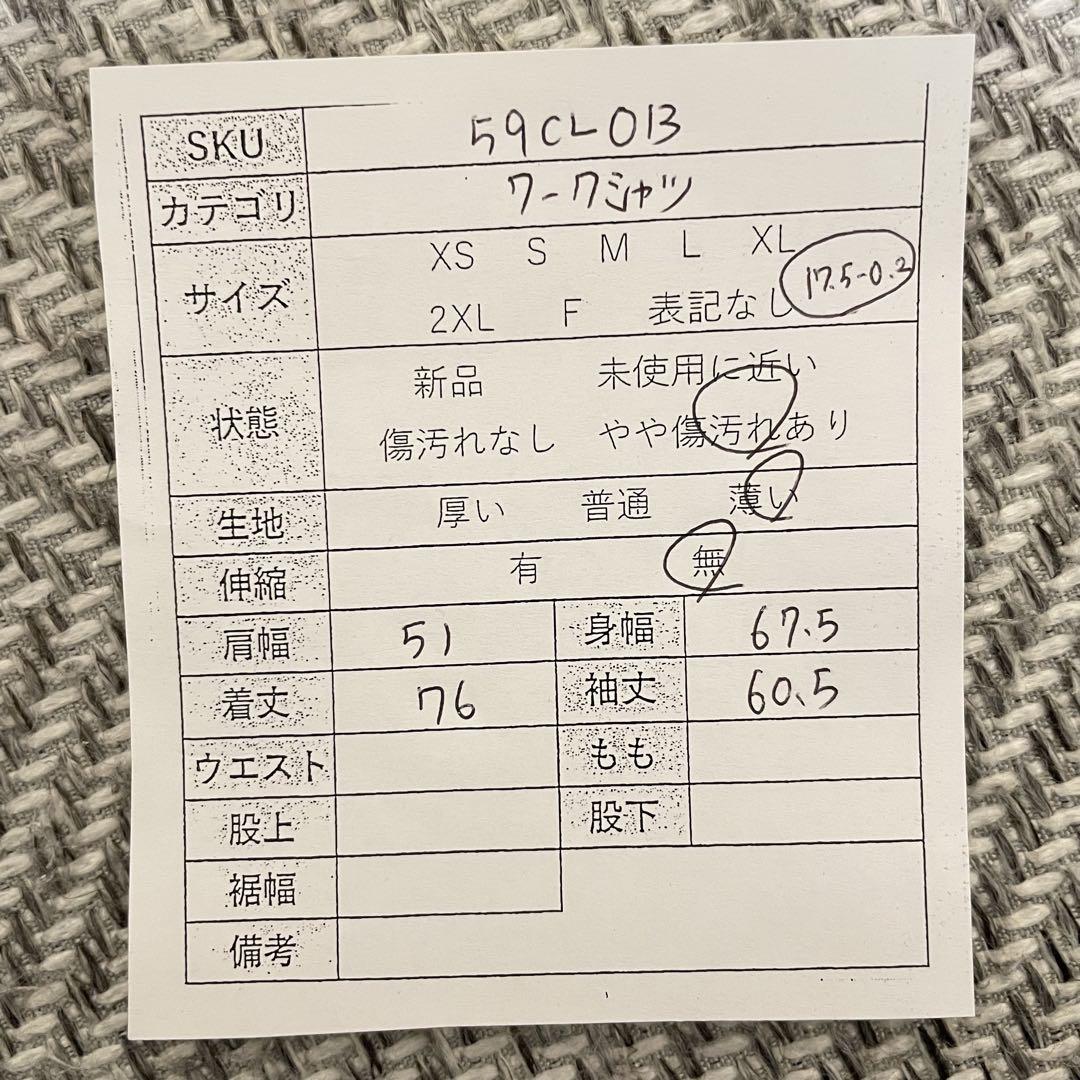 SKU 59CL013
カテゴリ ワークシャツ
サイズ XS S M L XL 17.5-0.2
2XL F 表記なし
状態 新品 未使用に近い
傷汚れなし やや傷汚れあり
生地 厚い 普通 薄い
伸縮 有 無
肩幅 51 身幅 67.5
着丈 76 袖丈 60.5
ウエスト もも
股上 股下
裾幅
備考